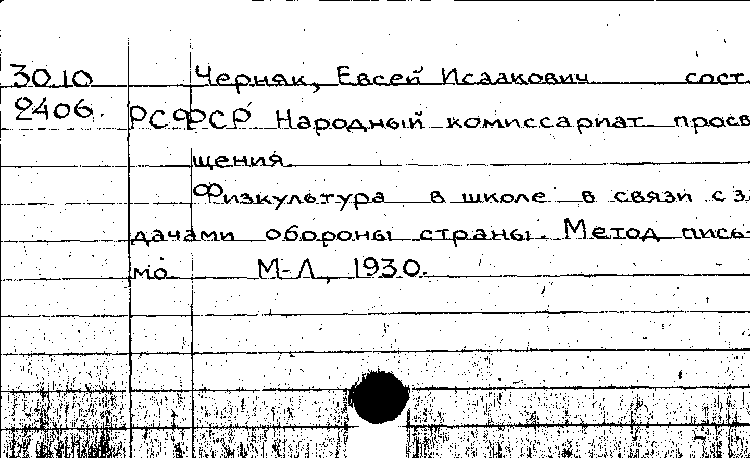 30.10 Черняк, Евсей Исаакович сост.
2406. РСФСР Народный комиссариат просв
щения.
Физкультура в школе в связи с за
дачами обороны страны. Метод пись-
мо. М-Л, 1930.